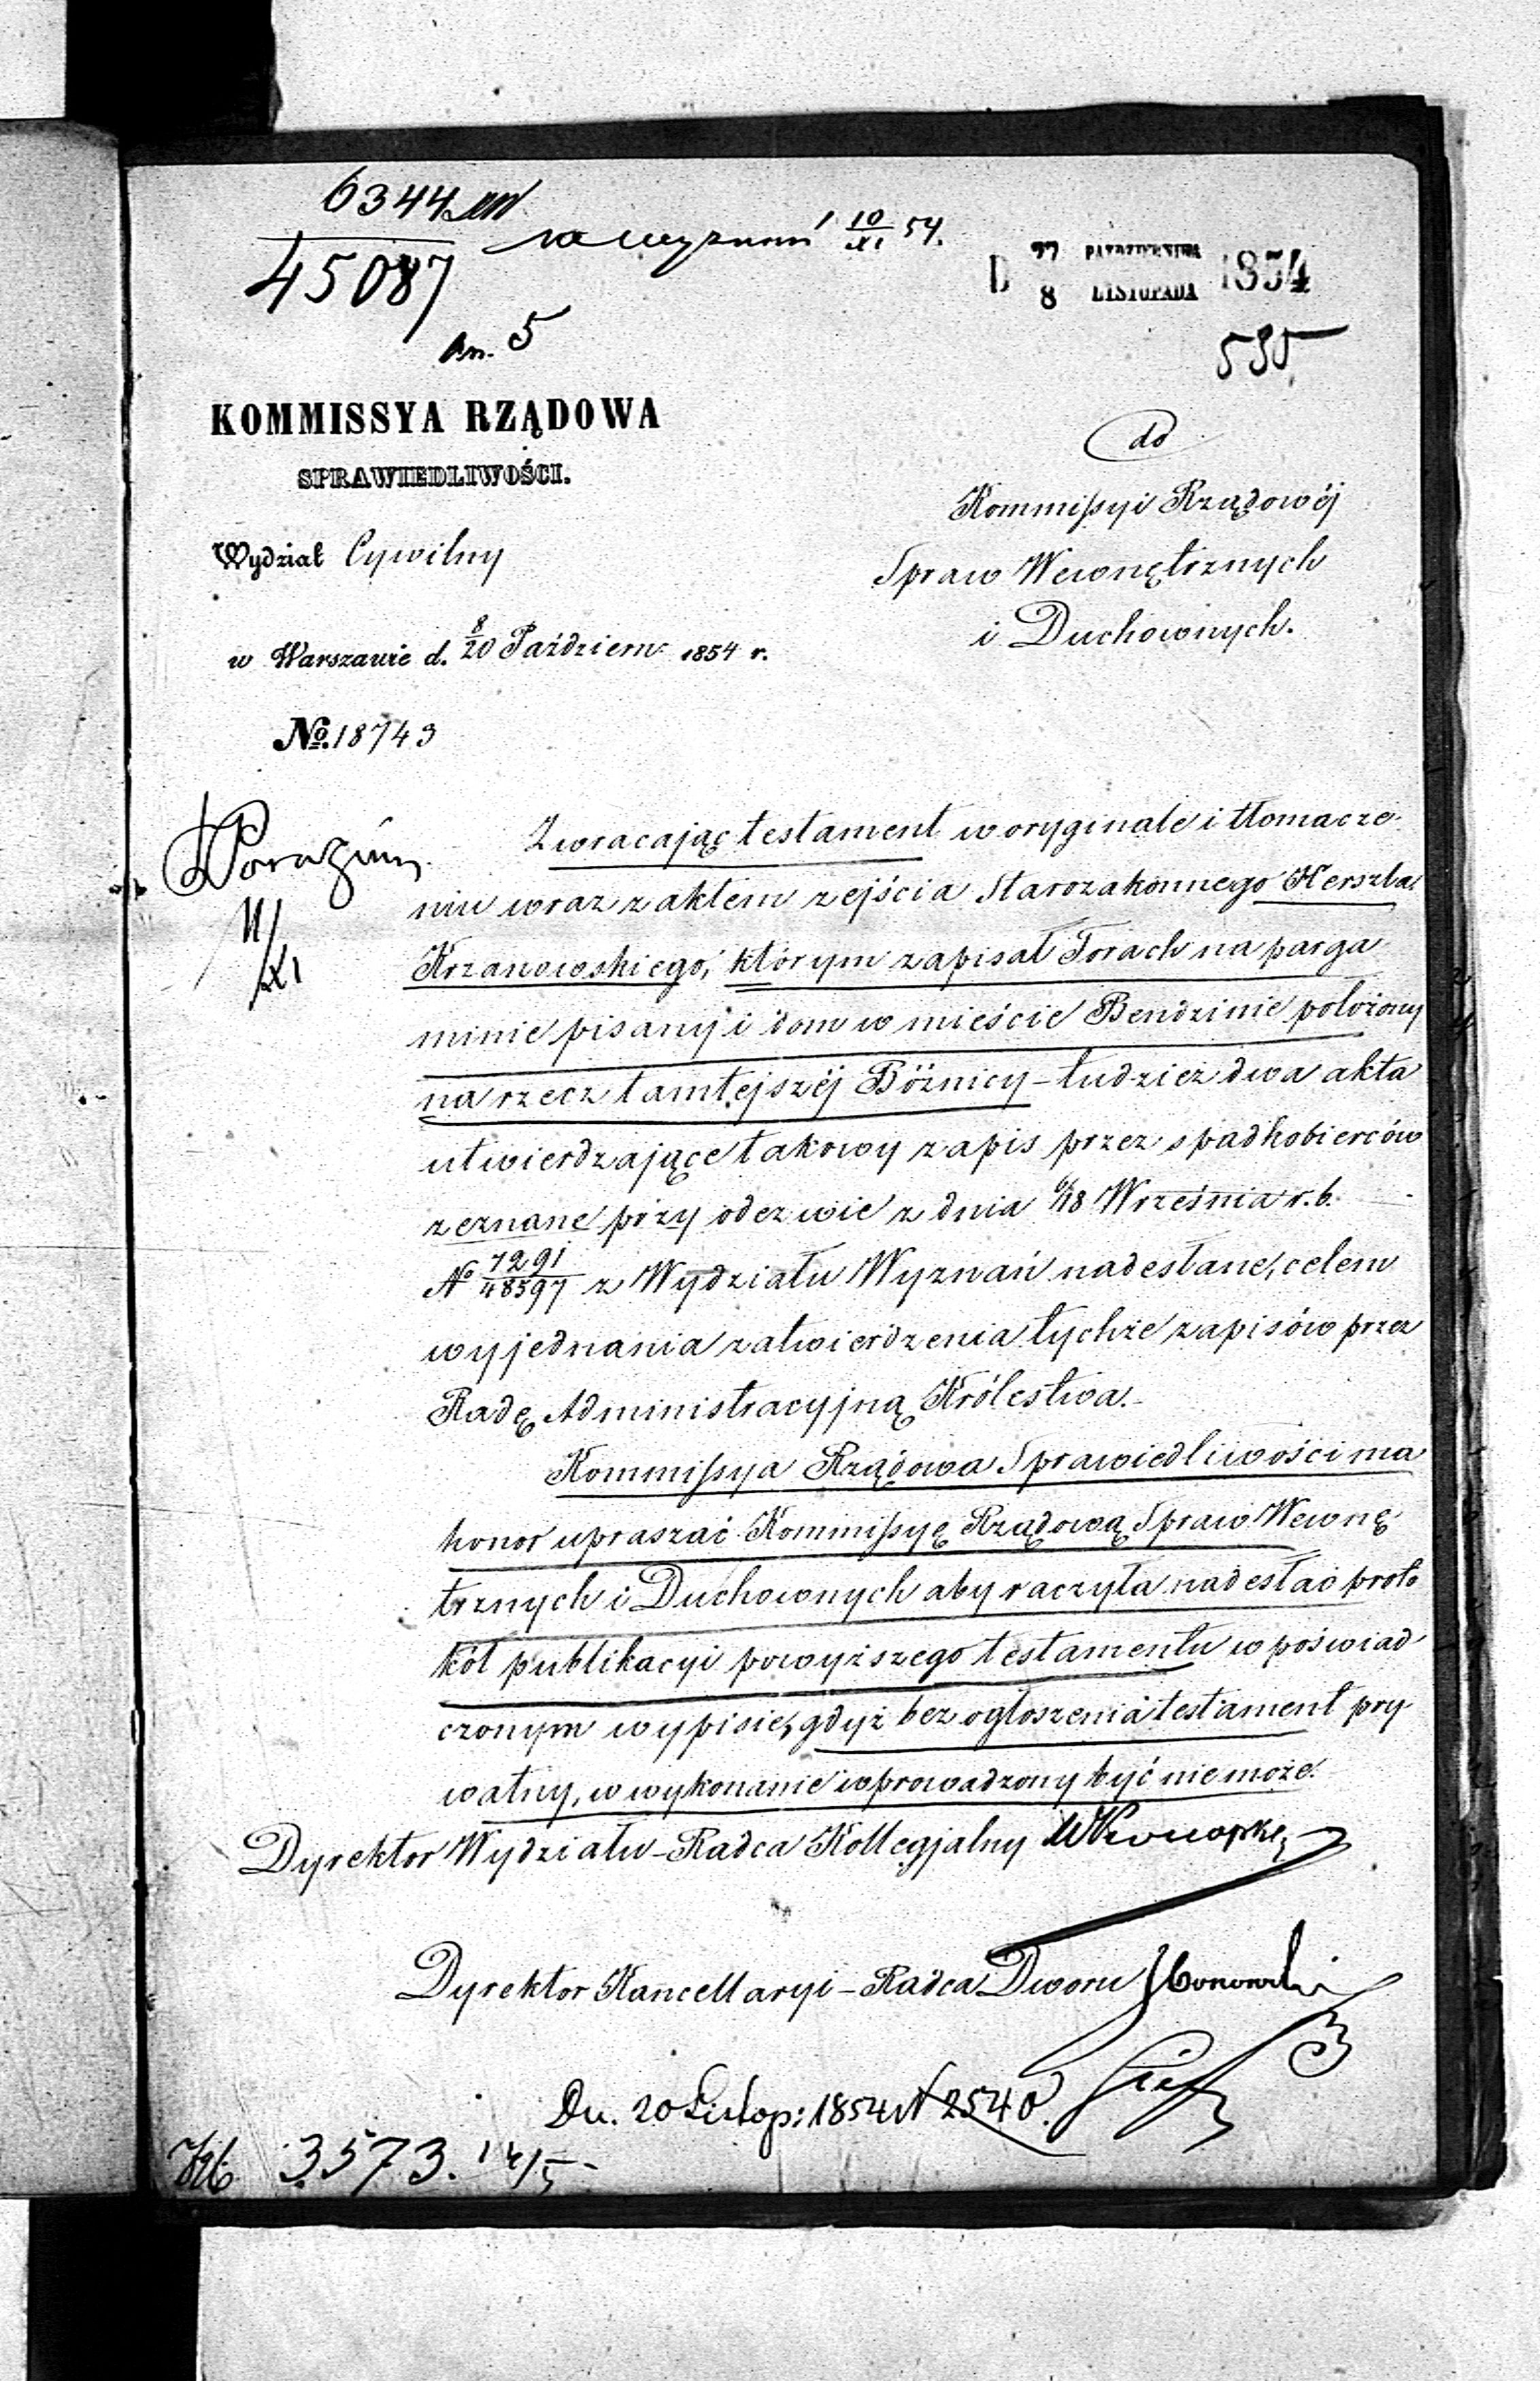 6344
45087
10/XI 54.
D 27/8 PAŹDZIERNIKA/LISTOPADA 1854
an. 5
595
KOMMISSYA RZĄDOWA
SPRAWIEDLIWOŚCI.
do
Kommissyi Rządowéj
Wydział Cywilny
Spraw Wewnętrznych
i Duchownych.
w Warszawie d. 8/20 Październ 1854 r.
No. 18743
Zwracając testament w oryginale i tłomacze-
niu wraz z aktem zejścia Starozakonnego Herszla
11/XI
Krzanowskiego, którym zapisał Torach na parga
minie pisany i dom w mieście Bendzinie położony
na rzecz tamtejszéj Bóżnicy – tudzież dwa akta
utwierdzające takowy zapis przez spadkobierców
zeznane przy odezwie z dnia 6/18 Września r. b.
No 7291/48597 z Wydziału Wyznań nadesłane, celem
wyjednania zatwierdzenia tychże zapisów przez
Radę Administracyjną Królestwa.-
Kommissya Rządowa Sprawiedliwości ma
honor upraszać Kommissyę Rządową Spraw Wewnę
trznych i Duchownych aby raczyła nadesłać proto
kół publikacyi powyższego testamentu w poświad
czonym wypisie, gdyż bez ogłoszenia testament pry-
watny, w wykonanie wprowadzony być nie może.
Dyrektor Wydziału – Radca Kollegjalny
Dyrektor Kancellaryi – Radca Dworu
Dn. 20 Listop: 1854 N 2540.
3573. 14/5-